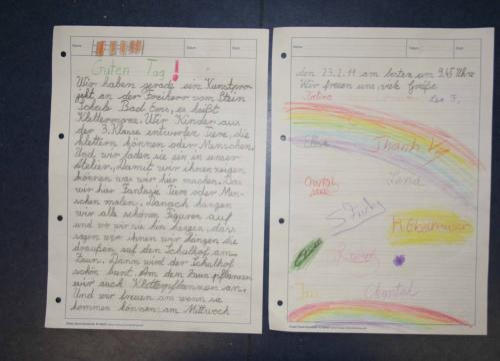 Name:
Datum:
Blatt:
Guten Tag!
Wir haben gerade ein Kunstpro-
jekt an der Freiherr vom Stein
Schule Bad Ems, es heißt
Klettermaxe. Wir Kinder aus
der 3. Klasse entwerfen Tiere, die
klettern können oder Menschen.
Und wir laden sie ein in unser
Atelier, Damit wir ihnen zeigen
können was wir hier machen. Das
wir hier Fantasie Tiere oder Men-
schen malen. Danach hängen
wir alle schönen Figuren auf
und wo wir sie hin hängen, das
sagen wir ihnen wir hängen die
draußen auf den Schulhof am
Zaun. Dann wird der Schulhof
schön bunt. An dem Zaun pflanzen
wir auch Kletterpflanzen an.
Und wir freuen an wenn sie
kommen können am Mittwoch
Name:
Datum:
Blatt:
den 23.2.11 am besten um 9.45 Uhr
Wir freuen uns, viele Grüße
Chantal